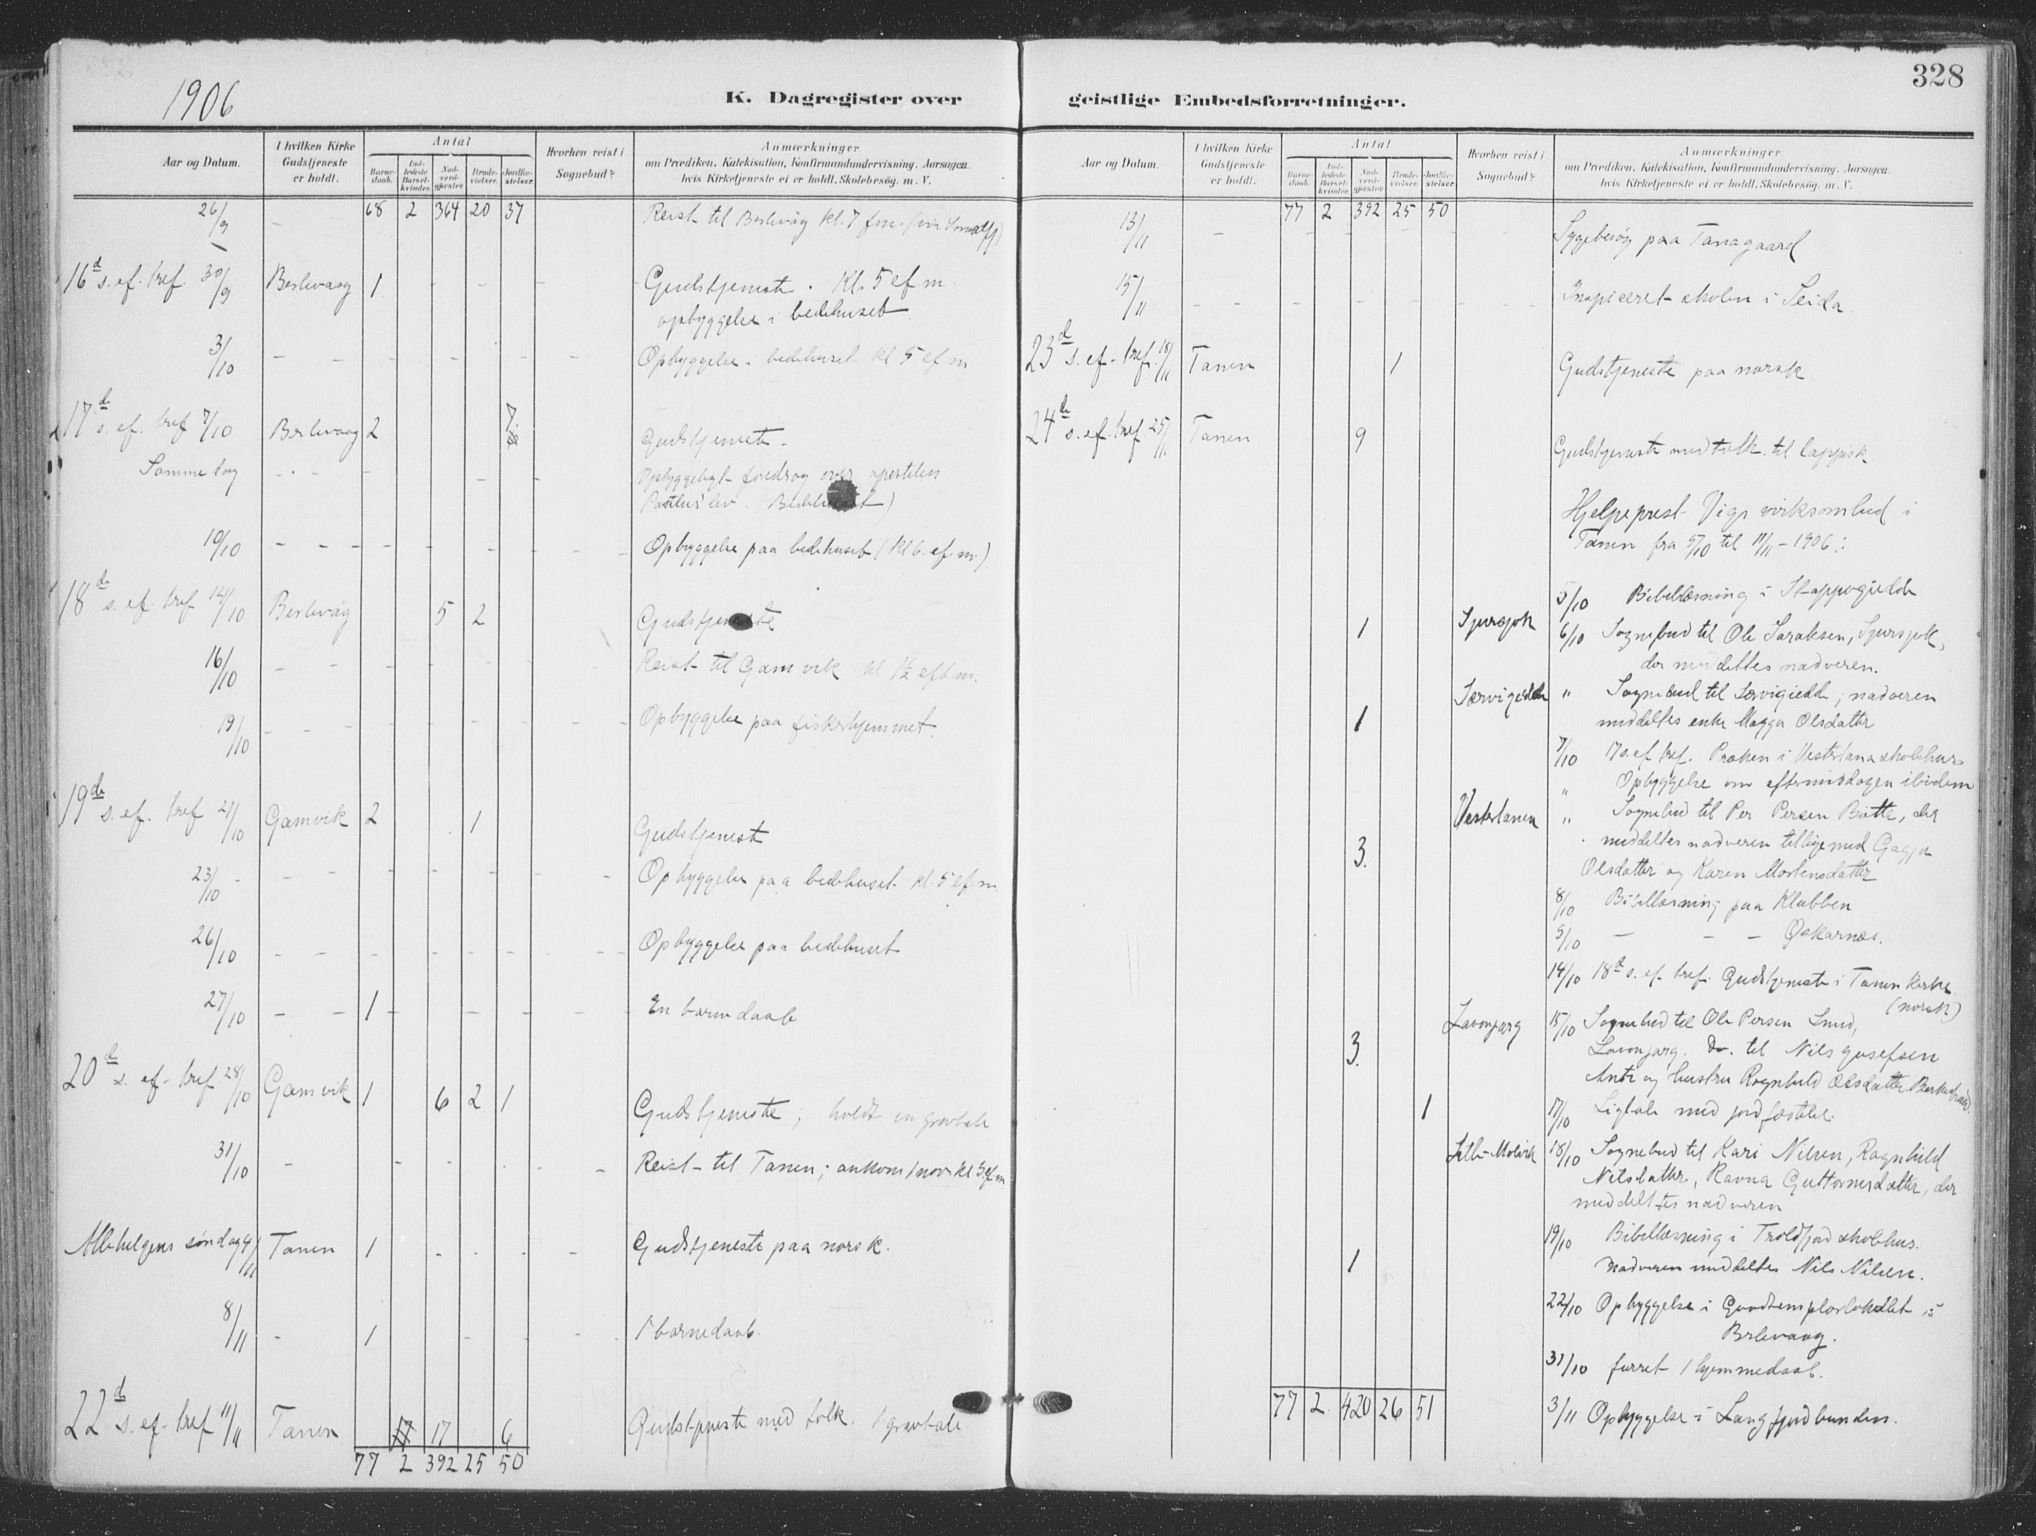 1906
K. Dagregister over
Aar og Datum.
I hvilken Kirke Gudstjeneste er holdt.
Antal
Barne-daab.
Ind-ledede Barsel-kvinder.
Nad-verd-gjester.
Brude-vielser.
Jordfæ-stelser.
Hvorhen reist i Sognebud?
Anmærkninger
om Prædiken, Katekisation, Konfirmandundervisning, Aarsagen,
hvis Kirketjeneste ei er holdt, Skolebesøg. m. V.
26/9 - 68 2 364 20 37 Reist til Berlevåg kl. 7 fm.
16d s. ef. tref. 30/9 Berlevaag 1 - - - - Gudstjeneste. Kl. 5 ef m.
opbyggelse i bedehuset
3/10 - - - - - - - Opbyggelse i bedehuset kl 5 ef m
17de s. ef. tref 7/10 Berlevaag 2 7. Gudstjeneste.
Samme dag - - - - Opbyggeligt foredrag over apostelen
Paulus' liv. Bedehuset)
10/10 - - - - - - - Opbyggelse paa bedehuset (kl 6. ef. m.)
18de s. ef. tref 14/10 Berlevåg 5 2 Gudstjeneste
16/10 - - - - - - Reist til Gamvik kl 1½ eft m.
19/10 - - - - - - Opbyggelse paa fiskerhjemmet.
19de s. ef. tref 21/10 Gamvik 2 1 Gudstjenest
23/10 - - - - - - - Opbyggelse paa bedehuset kl. 5 ef. m
26/10 - - - - - - - Opbyggelse paa bedehuset
27/10 - - 1 - - - - En barnedaab
20de s. ef. tref 28/10 Gamvik 1 6 2 1 Gudstjeneste; holdt en gravtale
31/10 - - - - - - Reist til Tanen; ankom kl 3 ef m.
Allehelgens søndag 4/11 Tanen 1 - - - - Gudstjeneste paa norsk.
8/11 - 1 - - - 1 barnedaab.
22d s. ef. tref 11/11 Tanen 17 6 Gudstjeneste med tolk. 1 gravtale
77 2 392 25 50
geistlige Embedsforretninger.
328
Aar og Datum.
I hvilken Kirke Gudstjeneste er holdt.
Antal
Barne-daab.
Ind-ledede Barsel-kvinder.
Nad-verd-gjester.
Brude-vielser.
Jordfæ-stelser.
Hvorhen reist i Sognebud?
Anmærkninger
om Prædiken, Katekisation, Konfirmandundervisning, Aarsagen,
hvis Kirketjeneste ei er holdt, Skolebesøg. m. V.
77 2 392 25 50
13/11 - - - - - - - Sygebesøg paa Tanagaard
15/11 - - - - - - - Inspiceret skolen i Seida.
23de s. ef. tref. 18/11 Tanen 1 Gudstjeneste paa norsk
24de s. ef. tref 25/11 Tanen 9 Gudstjeneste med tolk til lappisk.
Hjelpeprest Vigs virksomhed i
Tanen fra 5/10 til 11/11 - 1906:
5/10 Bibellæsning i Stappogiedde
1 Sjursjok 6/10 Sognebud til Ole Saraksen, Sjursjok,
der meddeltes nadveren.
Særvigiedde " Sognebud til Særvigiedde; nadveren
1 meddeltes enke Magga Olsdatter
7/10 17 s. ef tref. Præken i Vestertana skolehus
" Opbyggelse om eftermiddagen ibidem
Vestertanen " Sognebud til Per Persen Batte, der
3. meddeltes nadveren tilligemed Gagja
Olsdatter og Karen Mortensdatter
8/10 Bibellæsning paa Klubben
9/10 - - - Oskarnæs.
14/10 18d s. ef. tref. Gudstjeneste i Tanen kirke.
(norsk)
Lavonjarg 15/10 Sognebud til Ole Persen Smed,
3. Lavonjarg. Do. til Nils Josefsen
Ante og hustru Ragnhild Olsdatter
1 17/10 Ligtale med jordfæstelse.
Lille-Molvik 18/10 Sognebud til Kari Nilsen, Ragnhild
Nilsdatter, Ravna Guttormsdatter, der
meddeltes nadveren
19/10 Bibellæsning i Troldfjord skolehus.
1 Nadveren meddeltes Nils Nilsen.
22/10 Opbyggelse i Goodtemplarlokalet i
Berlevaag.
31/10 forret 1 hjemmedaab.
77 2 420 26 51 3/11 Opbyggelse i Langfjordbunden.